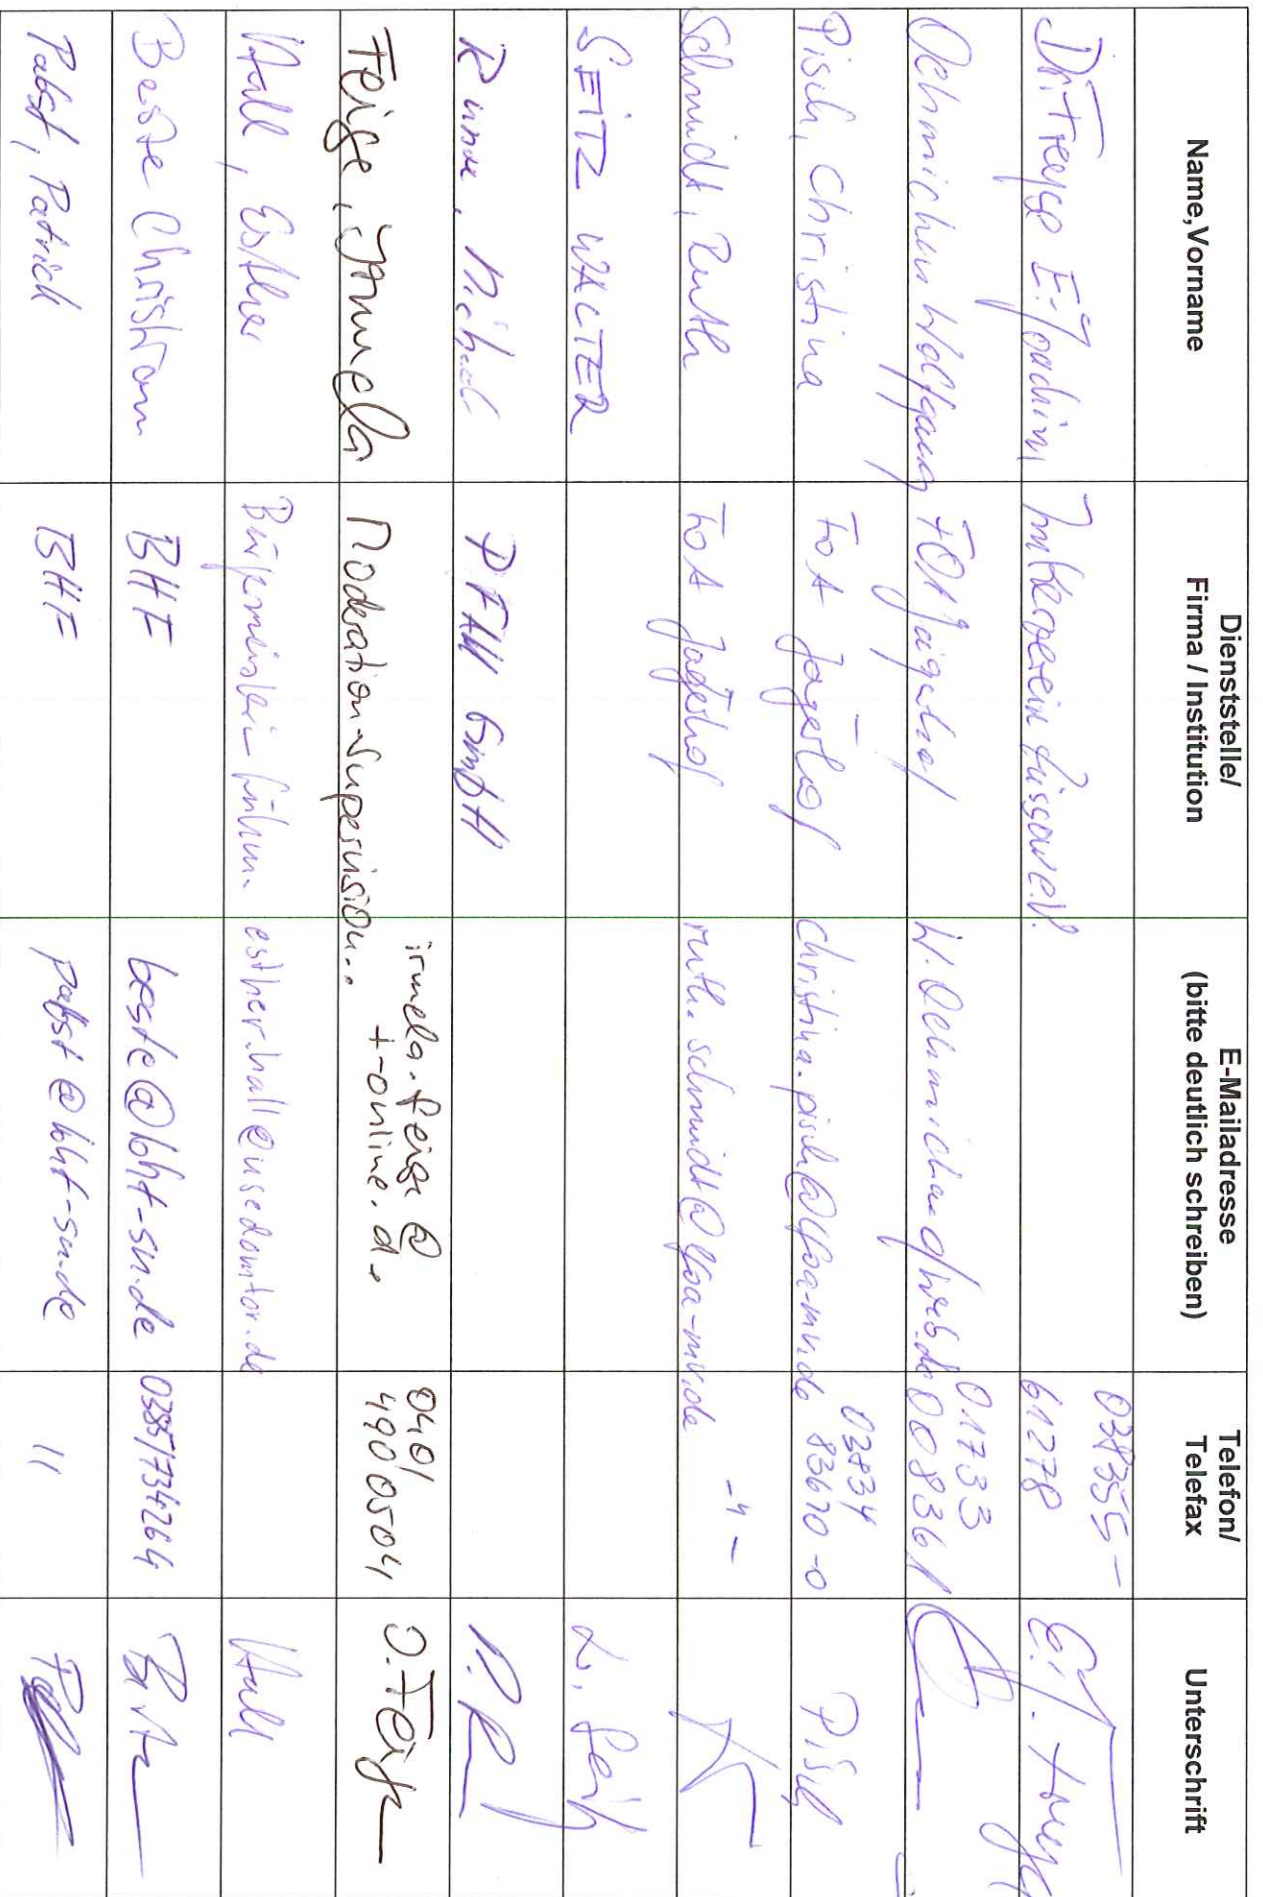 Name,Vorname
Dienststelle/
Firma / Institution
E-Mailadresse
(bitte deutlich schreiben)
Telefon/
Telefax
Unterschrift
Dr. Freyse E.-Joachim
Imkerverein Lassan e.V.
038355-
61278
Oehmichen Wolfgang
FOA Jägerhof
01733
008361
Pisch, Christina
FoA Jägerhof
christina.pisch@lfoa-mv.de
03834
83610-0
Schmidt, Ruth
FoA Jägerhof
ruth.schmidt@lfoa-mv.de
-"-
SEITZ WALTER
Runze, Michael
PFAU GmbH
Feige, Irmela
Moderation-Supervision...
irmela.feige@
t-online.de
040/
49000504
I. Feige
Hall, Esther
esther.hall@usedomtor.de
Hall
Beste Christian
BHF
beste@bhf-sn.de
0385/734264
Pabst, Patrick
BHF
pabst@bhf-sn.de
"